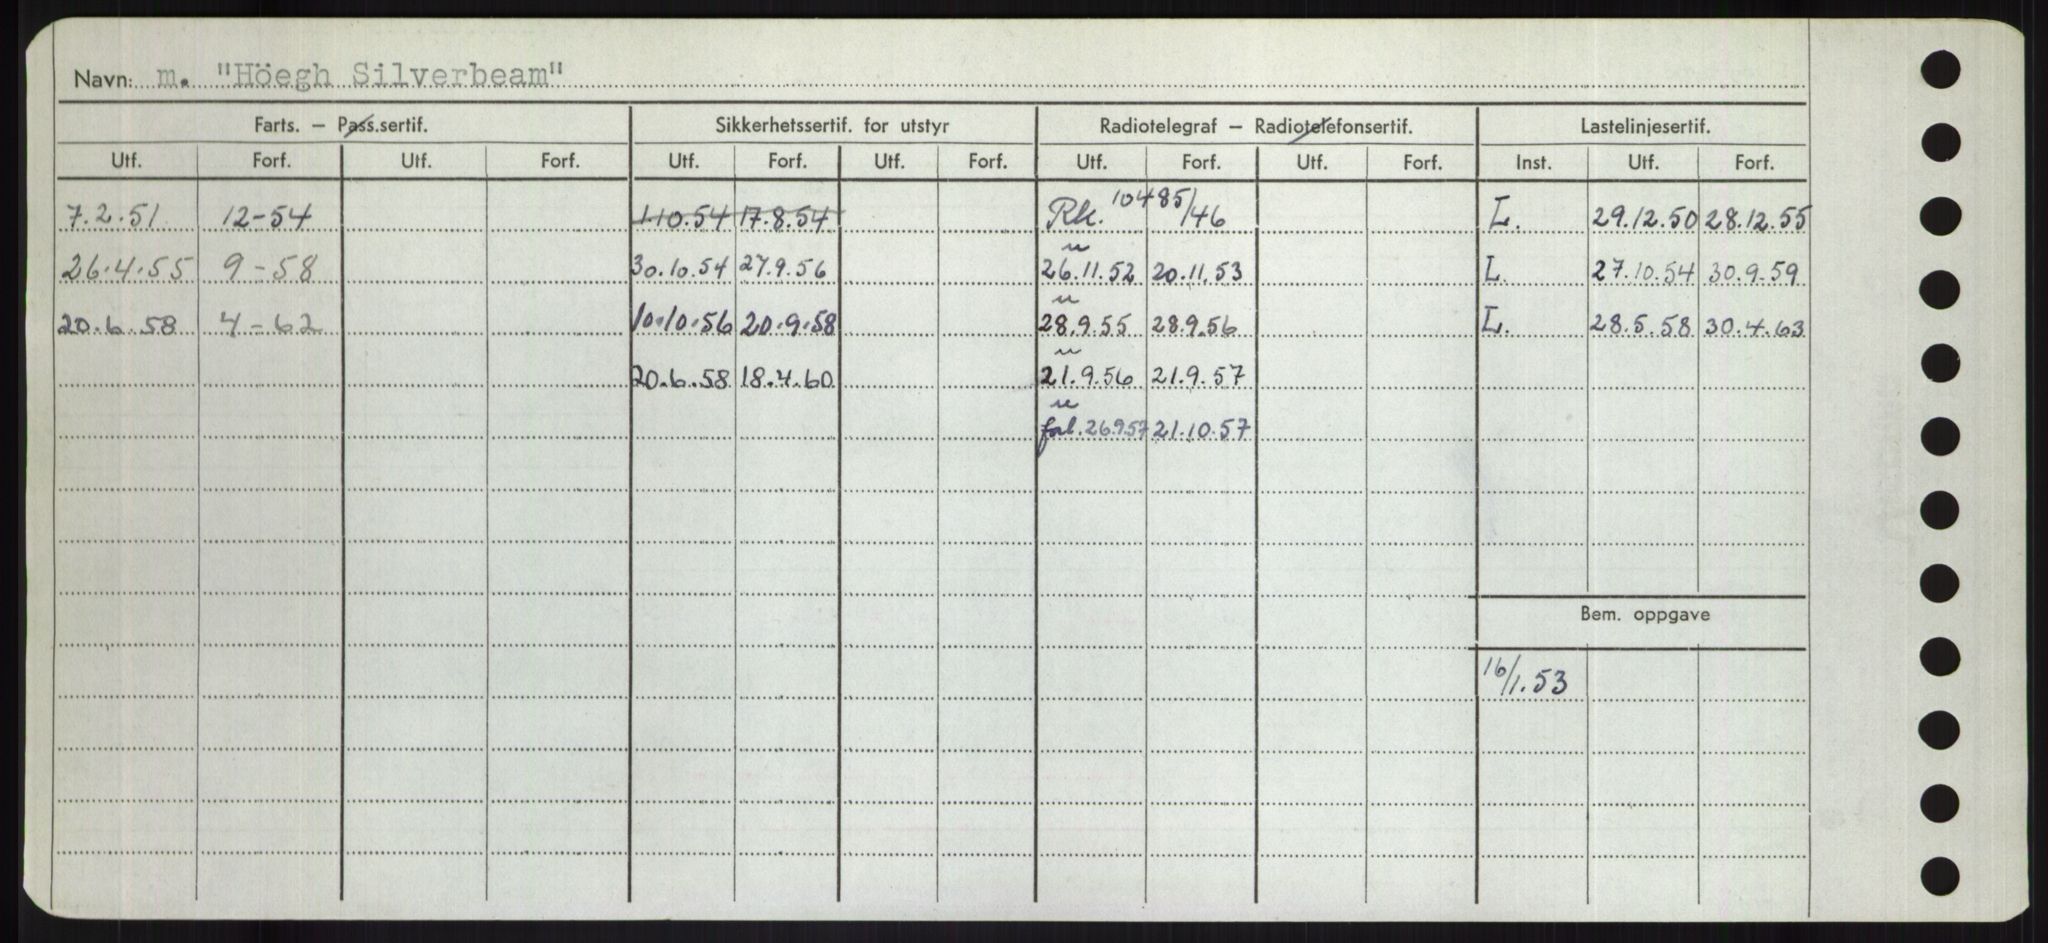 Navn: m. "Höegh Silverbeam"
Farts. – Pass.sertif. Sikkerhetssertif. for utstyr Radiotelegraf – Radiotelefonsertif. Lastelinjesertif.
Utf. Forf. Utf. Forf. Utf. Forf. Utf. Forf. Utf. Forf. Utf. Forf. Inst. Utf. Forf.
7.2.51 12-54 1.10.54 17.8.54 Rk. 10485/46 L. 29.12.50 28.12.55
u
26.4.55 9-58 30.10.54 27.9.56 26.11.52 20.11.53 L. 27.10.54 30.9.59
u
20.6.58 4-62 10.10.56 20.9.58 28.9.55 28.9.56 L. 28.5.58 30.4.63
u
20.6.58 18.4.60 21.9.56 21.9.57
u
forl. 26.9.57 21.10.57
Bem. oppgave
16/1.53